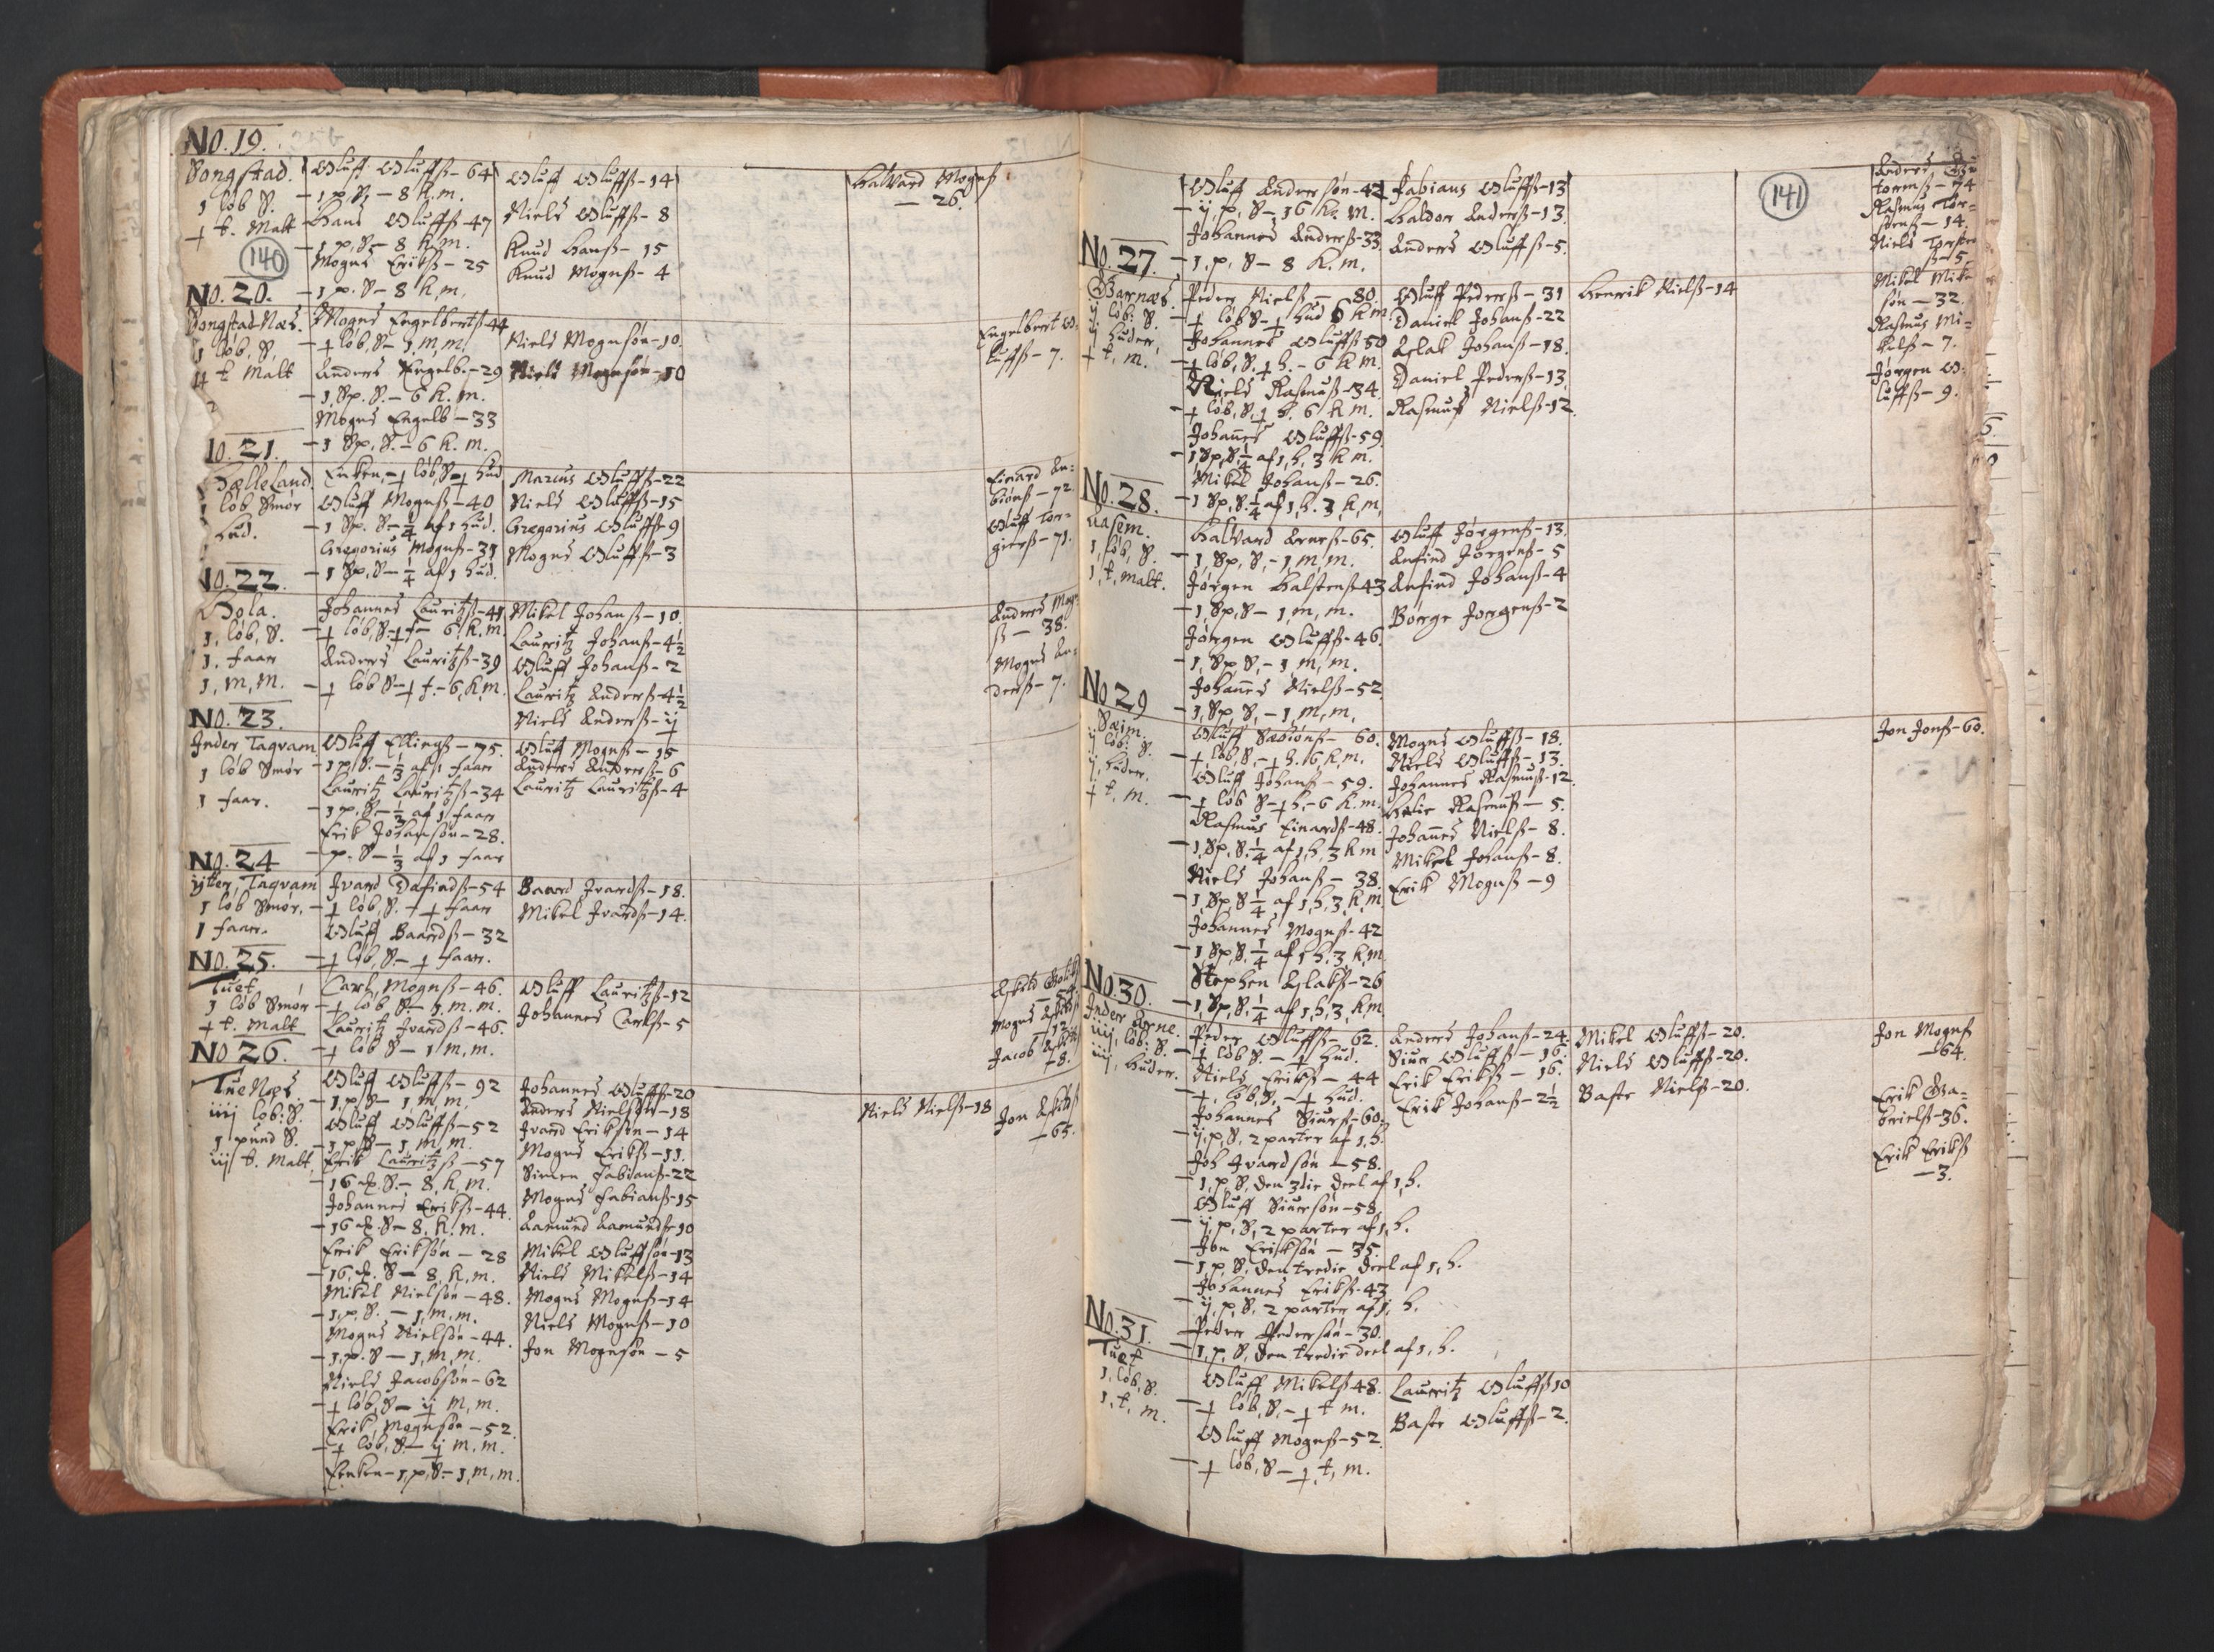 No. 19.
Songstad.
1 lób S.
½ t. Malt
140
Oluff Oluffß - 64
- 1 p. S. - 8 K. m.
Hans Oluffß - 47
- 1 p. S - 8 K. m.
Mogns Erikß - 25
- 1 p. S - 8 K. m.
Oluff Oluffß - 14
Niels Oluffß - 8
Knud Hansß - 15
Knud Mognß - 4
Halvard Mognß
- 26.
No. 20.
Songstad Næs.
1 lób. S.
t Malt
Mogns Engelbertß 44
- ½ lób. S - 1. m. m.
Anders Engelb. - 29
- 1. Sp. S. - 6 K. m.
Mogns Engelb - 33
- 1 Sp. S. - 6 K. m.
Niels Mognsón - 10.
Niels Mognsón - 10
Engelbert O-
luffß - 7.
o. 21.
Helleland.
1 lób Smór
hud.
Enken - ½ lób. S - ½ hud
Oluff Mognß - 40
- 1 Sp. S - ¼ af 1 hud.
Gregorius Mognß - 31
- 1 Sp. S - ¼ af 1 hud.
Marcus Oluffß - 22
Niels Oluffß - 15
Gregorius Oluffß - 9
Mogns Oluffß - 3
Einard An=
biónß - 72.
Oluff Tor=
gierß - 71.
No. 22.
Hola.
1. lób. S.
1. faar
1. m. m.
Johannes Lauritzß - 41
- ½ lób. S - ½ f - 6 K. m.
Anders Lauritzß - 39
- ½ lób S - ½ f. - 6. K. m.
Mikel Johanß - 10.
Lauritz Johanß - 4½
Oluff Johanß - 2
Lauritz Anderß - 4½
Niels Anderß - ij
Anders Mogn
ß - 38.
Mogns An=
derß - 7.
No. 23.
Inder Taqvam
1 lób Smór
1 faar.
Oluff Ellingß - 75.
- 1 p. S. - ⅓ af 1 faar
Lauritz Lauritzß - 34
- 1 p. S. - ⅓ af 1 faar
Erik Johansón - 28.
- p. S - ⅓ af 1 faar
Oluff Mognß - 15
Anders Anderß - 6
Lauritz Lauritzß - 4
No. 24
ytter Taqvam
1 lób Smór.
1 faar.
Ivard Dafindß - 54
- ½ lób. S. - ½ faar
Oluff Baardß - 32
- ½ lób. S - ½ faar.
Baard Ivardß - 18.
Mikel Ivardß - 14.
No. 25.
Tuet.
1 lób Smór
½ t. Malt
Carl Mognß - 46.
- ½ lób S. - 1. m. m.
Lauritz Ivardß - 46.
- ½ lób S - 1 m. m.
Oluff Lauritzß - 12
Johannes Carlß - 5
Mogns
Jacob
- 8.
No 26.
Tue Næs
iiij lób: S.
1 pund S.
iij t. Malt
Oluff Oluffß - 92
- 1. p. S - 1 m. m.
Oluff Oluffß - 52
- 1 p. S - 1 m. m.
Erik Lauritzß - 57
- 16 S. - 8. K. m.
Johannes Erikß - 44.
- 16 S - 8. K. m.
Erik Eriksón - 28
- 16 S - 8. K. m.
Mikel Nielsón - 48.
- 1. p. S. - 1. m. m.
Mogns Nielsón - 44.
- 1. p. S - 1. m. m.
Niels Jacobsón - 62
- ½ lób. S - ij m. m.
Erik Mognsón - 52.
- ½ lób. S. - ij m. m.
Enken - 1. p. S - 1. m. m.
Johannes Oluffß - 20
Anders Nielsón - 18
Ivard Eriksón - 14
Mogns Erikß - 11.
Simen Fabianß - 22
Mogns Fabianß - 15
Aamund Aamundß - 10
Mikel Oluffsón - 13
Niels Mikelß - 14
Mogns Mognß - 14
Niels Mognß - 10
Jon Mognsón - 5
Niels Nielß - 18
Jon
- 65.
141
Oluff Andersón - 42
- ij. p. S - 16 K. m.
Johannes Anderß - 33
- 1. p. S - 8 K. m.
Fabians Oluffß - 13
Haldor Anderß - 13.
Anders Oluffß - 5.
Anders
torenß - 74
Rasmus Tor=
ßenß - 14.
Niels Torsten
ß - 5
No. 27.
Garnæs.
ij lób: S.
ij huder.
½ t. m.
Peder Nielß - 80.
½ lób S - ½ hud 6 K m
Johannes Oluffß 50
- ½ lób. S. ½ h. - 6 K m.
Niels Rasmusß - 34.
- ½ lób. S. ½ h. 6 K m.
Johannes Oluffß - 59.
- 1 Sp. S ¼ af 1. h. 3 K m.
Mikel Johanß - 26.
- 1 Sp. S. ¼ af 1. h. 3. K. m.
Oluff Pederß - 31
Daniel Johanß - 22
Aslak Johanß - 18.
Daniel Pederß - 13.
Rasmus Nielß - 12.
Henrik Nielß - 14
Mikel Mikel
són - 32.
Rasmus Mi=
kelß - 7.
Jórgen O=
luffß - 9.
No. 28.
Aasem.
1. lób. S.
1. t. malt.
Halvard Arneß - 65.
- 1. Sp. S. - 1. m. m.
Jórgen Halstenß 43
- 1. Sp. S - 1 m. m.
Jórgen Oluffß - 46.
- 1. Sp S. - 1 m. m.
Johannes Nielß - 52
- 1. Sp. S. - 1. m. m.
Oluff Jórgenß - 13.
Anfind Jórgenß - 5
Anfind Johanß - 4
Bórge Jórgenß - 2
No 29
Seim.
ij lób: S.
ij. huder.
½ t. m.
Oluff Sæbiónß - 60.
- ½ lób. S. - ½ h. 6. K. m.
Oluff Johanß - 59.
- ½ lób S - ½ h. - 6 K. m.
Rasmus Einardß - 48.
- 1. Sp. S. ¼ af 1. h. 3 K m
Niels Johanß - 38.
- 1. Sp. S ¼ af 1. h. 3. K. m
Johannes Mognß - 42
- 1 Sp. S. ¼ af 1 h. 3 K. m.
Stephen Aslakß - 26
- 1. Sp. S. ¼ af 1. h. 3. K m
Mogns Oluffß - 18.
Niels Oluffß - 13.
Johannes Rasmusß - 12.
Helie Rasmusß - 5.
Johannes Nielß - 8.
Mikel Johanß - 8.
Erik Mognß - 9
Jon Jonß - 60.
No. 30.
Inder Arne.
iiij. lób: S.
iiij. huder.
Peder Oluffß - 62.
- ½ lób S. - ½ hud.
Niels Erikß - 44
- ½ lób. S. - ½ hud.
Johannes Siurß - 60.
- ij. p. S. 2 parter af 1. h.
Joh Ivardsón - 58.
- 1. p. S. den 3die deel af 1. h.
Oluff Siuersón - 58.
- ij. p. S. 2 parter af 1. h.
Jon Eriksón - 35.
- 1. p. S. den tredie deel af 1. h.
Johannes Erikß - 43
- ij. p. S. 2 parter af 1. h.
Peder Pedersón - 30.
- 1. p. S. den tredie deel af 1. h.
Anders Johanß - 24.
Siuer Oluffß - 16.
Erik Erikß - 16.
Erik Johanß - 2½
Mikel Oluffß - 20.
Niels Oluffß - 20.
Baste Nielß - 20.
Jon Mognß
- 64.
Erik Ga=
brielß - 36.
Erik Erikß
- 3.
No. 31.
Tuet
1. lób. S.
1. t. m.
Oluff Mikelß 48.
- ½ lób. S. - ½ t m.
Oluff Mognß - 52.
- ½ lób. S - ½ t. m.
Lauritz Oluffß 10
Baste Oluffß - 2.